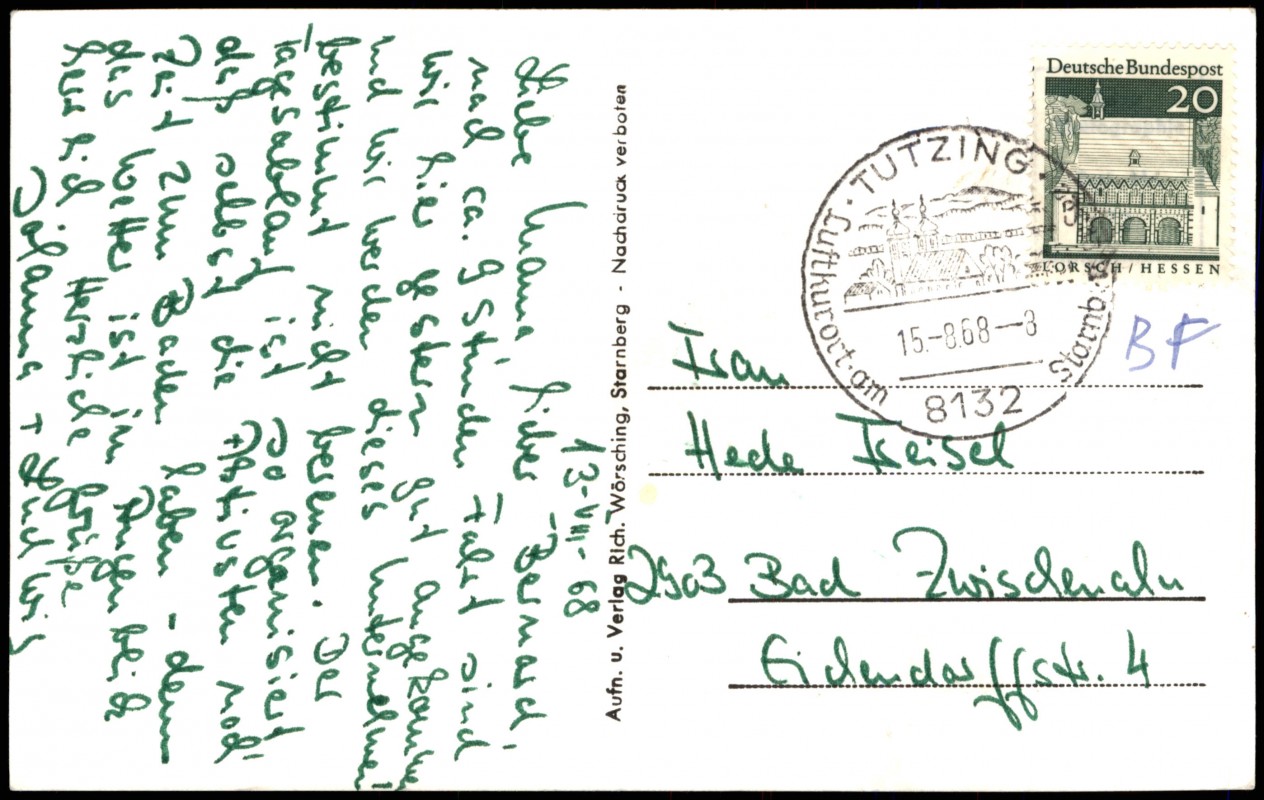 13-VIII-68
Liebe Mama, lieber Bernard!
nach ca. 9 Stunden Fahrt sind
wir hier gestern gut angekommen
und wir werden dieses Unternehmen
bestimmt nicht bereuen. Der
Tagsablauf ist so organisiert
daß selbst die Aktivsten noch
Zeit zum Baden haben - denn
das Wetter ist im Augenblick
herrlich. Herzliche Grüße
Johanna + Ludwig
Aufn. u. Verlag Rich. Wörsching, Starnberg - Nachdruck verboten
Deutsche Bundespost
20
LORSCH / HESSEN
Luftkurort · TUTZING · am Starnb.
15.-8.68--8
8132
BF
Frau
Hede Freisel
2903 Bad Zwischenahn
Eichendorffstr. 4